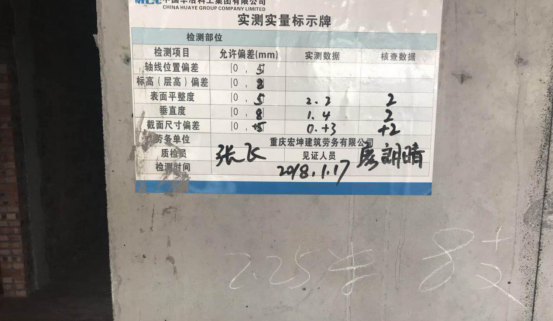 CHINA HUAYE GROUP COMPANY LIMITED
实测实量标示牌
检测部位
检测项目 允许偏差(mm) 实测数据 核查数据
轴线位置偏差 [0, 5]
标高(层高)偏差 [0, 8]
表面平整度 [0, 5] 2.2 2
垂直度 [0, 8] 1.4 2
截面尺寸偏差 [0, +5] 0.+3 +2
劳务单位 重庆宏坤建筑劳务有限公司
质检员 张飞 见证人员
检测时间 2018.1.17